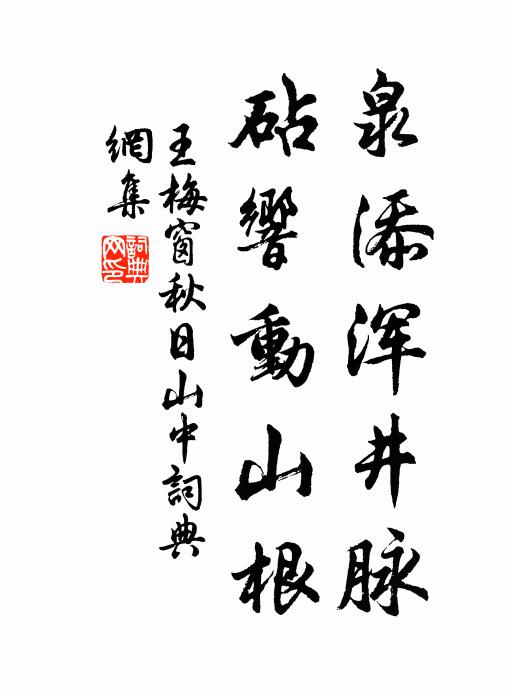 泉添浑井脉
砧響動山根
王梅窗秋日山中詞典
網集
詞典
网印